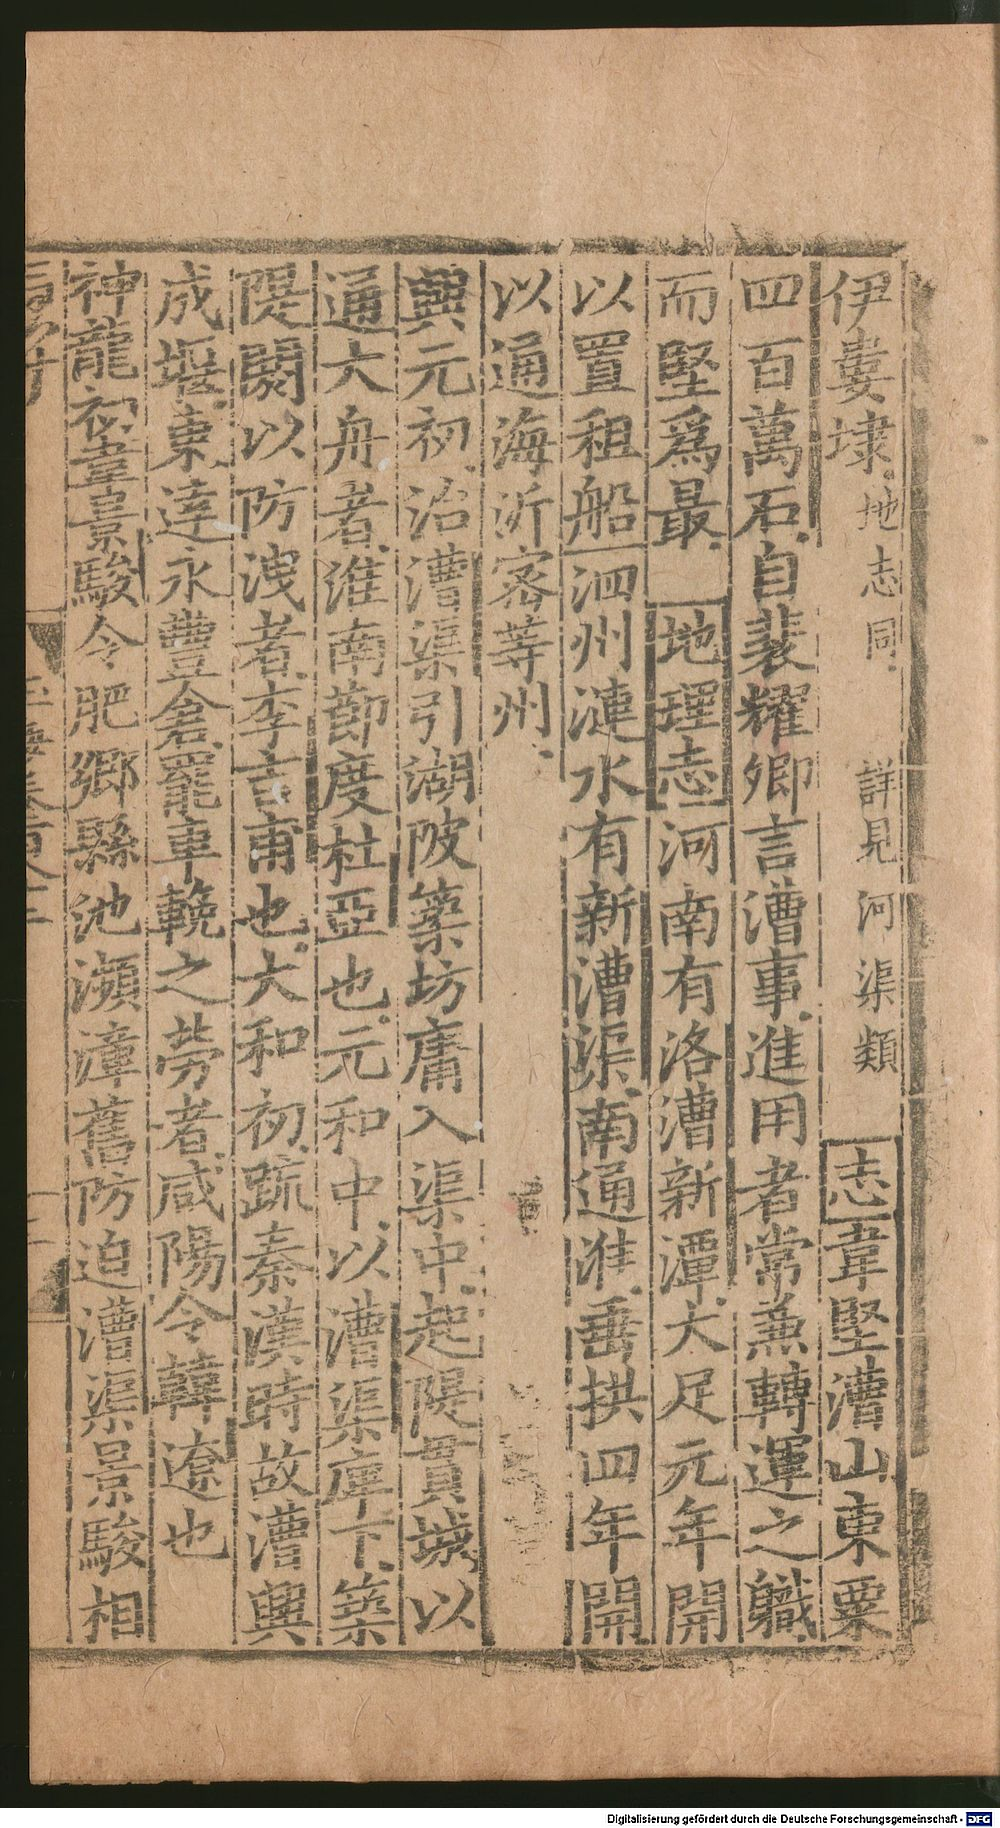 伊婁埭地志同　詳見河渠類　志韋堅漕山東粟
四百萬石自裴耀卿言漕事進用者常兼轉運之職
而堅爲最　地理志河南有洛漕新潭大足元年開
以置租船泗州漣水有新漕渠南通淮垂拱四年開
以通海沂密等州
興元初治漕渠引湖陂築坊庸入渠中起隄貫城以
通大舟者淮南節度杜亞也元和中以漕渠庳下築
隄閼以防洩者李吉甫也大和初疏秦漢時故漕興
成堰東達永豐倉罷車輓之勞者咸陽令韓遼也
神龍初韋景駿令肥鄉縣池瀕漳舊防迫漕渠景駿相
Digitalisierung gefördert durch die Deutsche Forschungsgemeinschaft - DFG